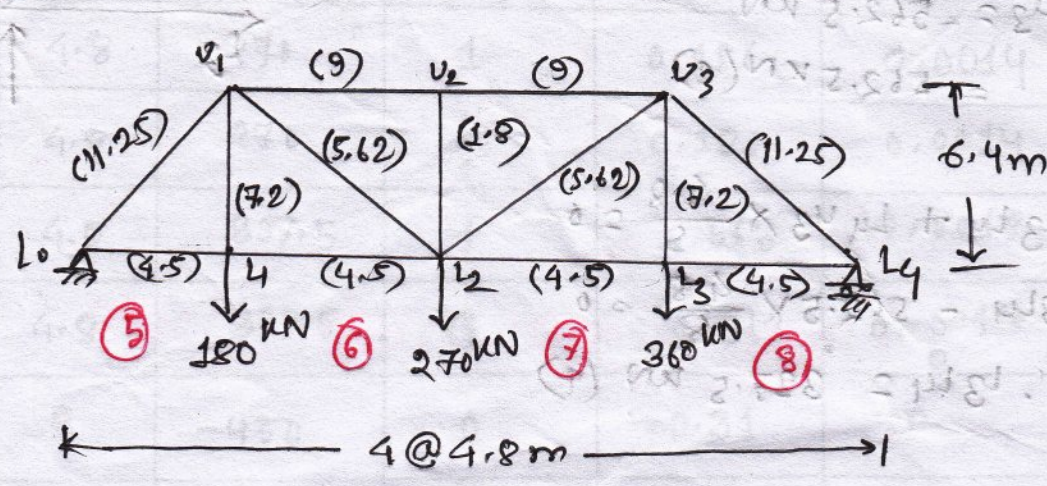 U1 (9) U2 (9) U3
(11.25) (5.62) (1.8) (5.62) (11.25) 6.4m
(7.2) (7.2)
L0 (4.5) L1 (4.5) L2 (4.5) L3 (4.5) L4
5 180 KN 6 270 KN 7 360 KN 8
4 @ 4.8 m